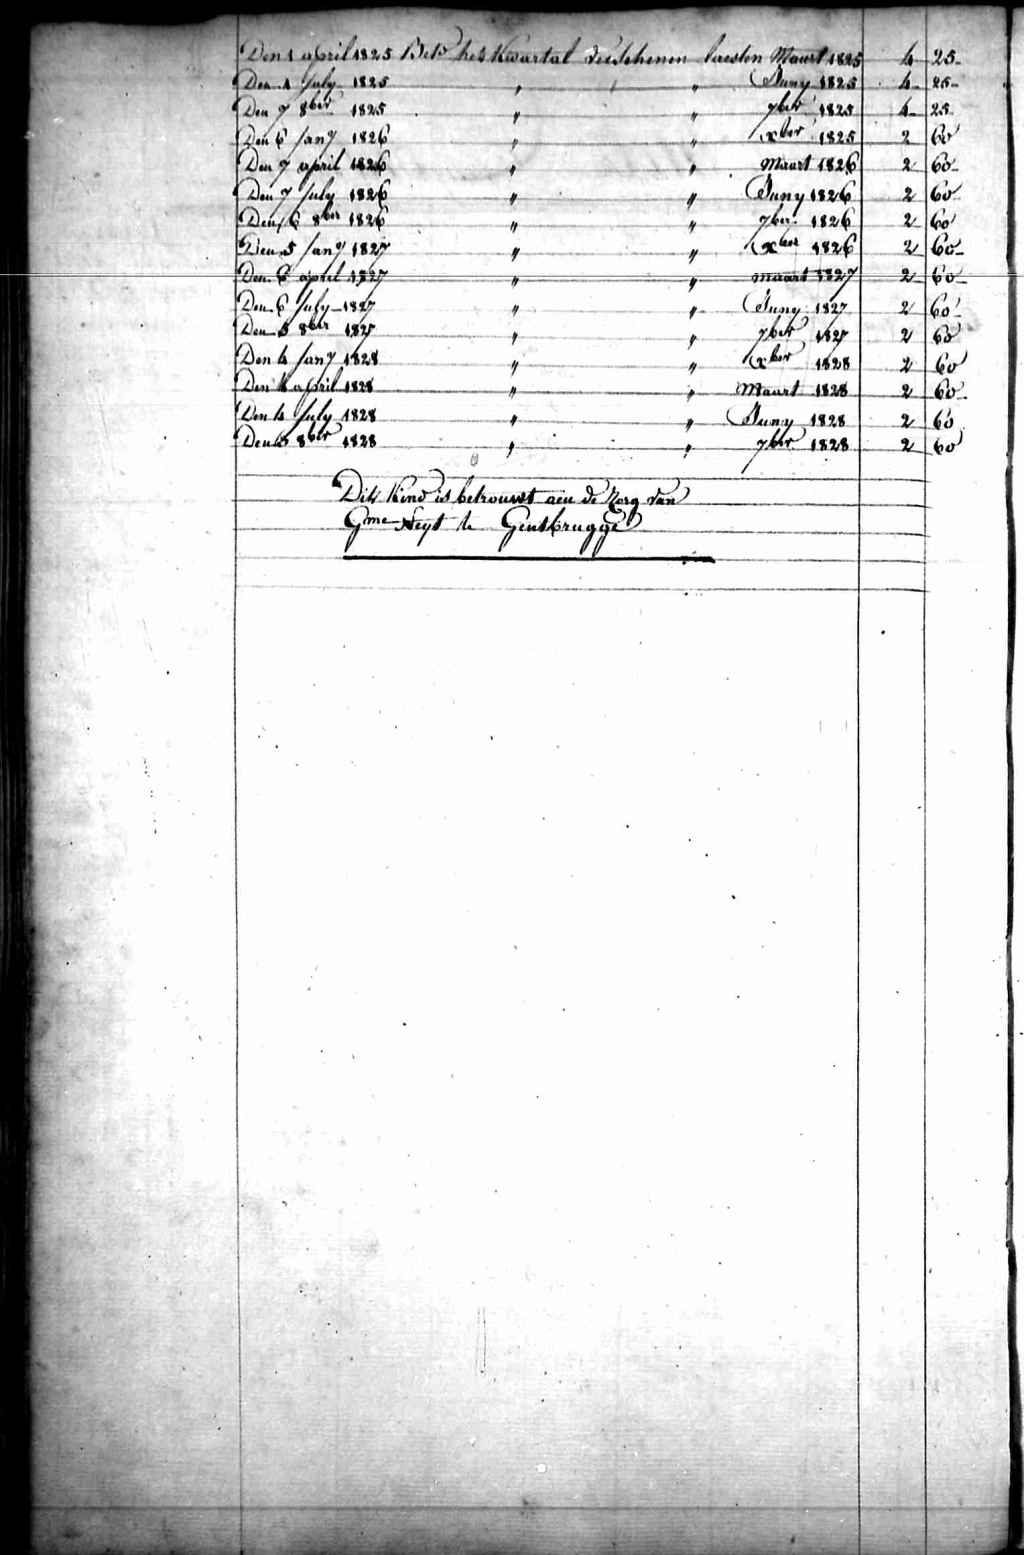 Den 1 april 1825 Bet.d het kwartal verschenen laesten Maart 1825 4 25
Den 1 July 1825 " " Juny 1825 4 25
Den 7 8ber 1825 " " 7ber 1825 4 25
Den 6 Jany 1826 " " Xber 1825 2 60
Den 7 april 1826 " " Maart 1826 2 60
Den 7 July 1826 " " Juny 1826 2 60
Den 6 8ber 1826 " " 7ber 1826 2 60
Den 5 Jany 1827 " " Xber 1826 2 60
Den 6 april 1827 " " maart 1827 2 60
Den 6 July 1827 " " Juny 1827 2 60
Den 5 8ber 1827 " " 7ber 1827 2 60
Den 4 Jany 1828 " " Xber 1828 2 60
Den 4 april 1828 " " Maart 1828 2 60
Den 4 July 1828 " " Juny 1828 2 60
Den 8ber 1828 " " 7ber 1828 2 60
Dit Kind is betrouwt aen de Zorg van
Gme Neyt te Gentbrugge